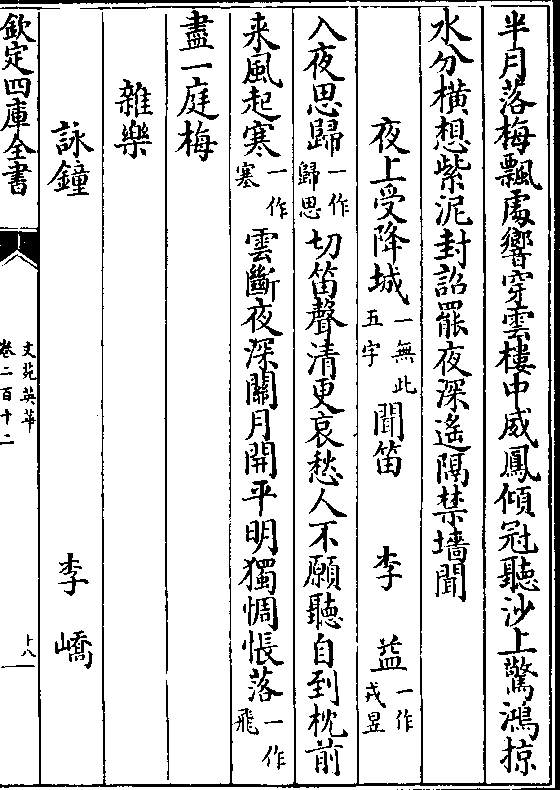 半月落梅飄處響穿雲樓中威鳳傾冠聽沙上驚鴻掠
水分横想紫泥封詔罷夜深遙隔禁墻聞
夜上受降城一無此五字聞笛 李益一作戎昱
入夜思歸一作歸思切笛聲清更哀愁人不願聽自到枕前
来風起寒一作塞雲斷夜深關月開平明獨惆悵落一作飛
盡一庭梅
雜樂
詠鐘 李嶠
欽定四庫全書
文苑英華
卷二百十二
十八